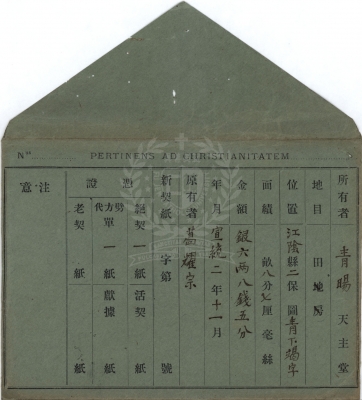 Nº
PERTINENS AD CHRISTIANITATEM
所有者 青暘 天主堂
地目 田地房
位置 江陰縣二保 圖青下暘字
面積 畝八分 厘毫絲
金額 銀六兩八錢五分
年月 宣統二年十一月
原有者 耀宗
新契紙 字第 號
憑 絕契一紙 活契 紙
證 代方單 一紙 獻據 紙
老契 紙 紙
注意